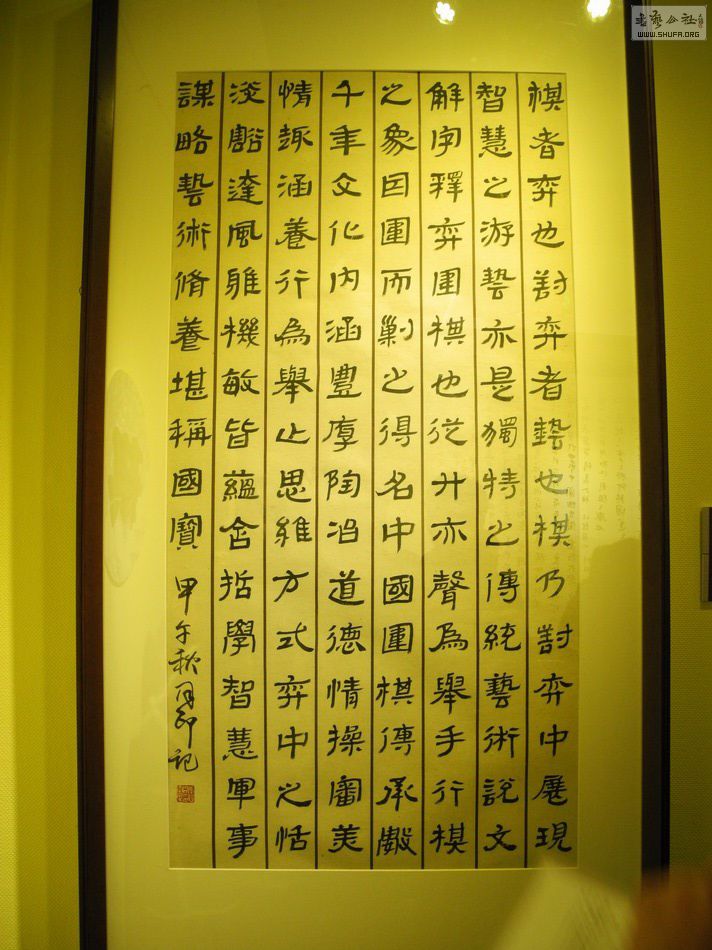 棋者弈也對弈者藝也棋乃對弈中展現
智慧之游藝亦是獨特之傳統藝術說文
解字釋弈圍棋也從廾亦聲為舉手行棋
之象因圍而剿之得名中國圍棋傳承數
千年文化内涵豐厚陶冶道德情操審美
情趣涵養行為舉止思維方式弈中之恬
淡豁達風雅機敏皆蘊含哲學智慧軍事
謀略藝術脩養堪稱國寶
甲午秋月記
書藝公社
WWW.SHUFA.ORG